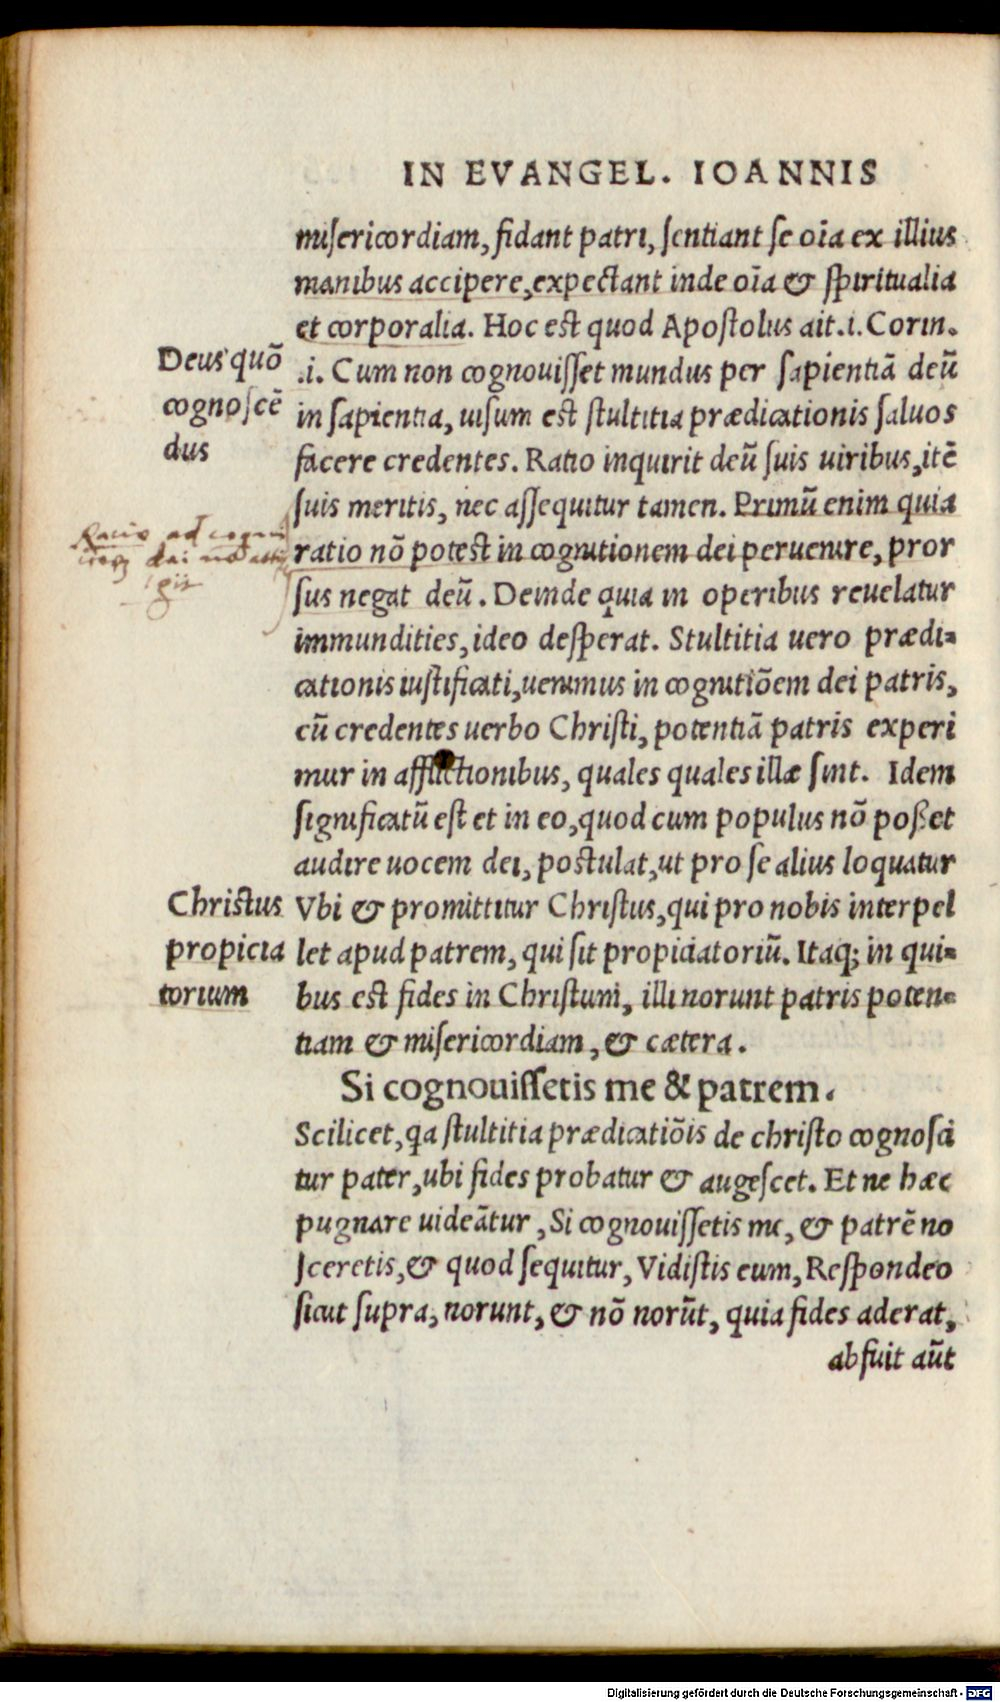 IN EVANGEL. IOANNIS
miſericordiam, fidant patri, ſentiant ſe oīa ex illius
manibus accipere, expectant inde oīa & ſpiritualia
et corporalia. Hoc est quod Apoſtolus ait .i. Corin.
.i. Cum non cognouiſſet mundus per ſapientiā deū
in ſapientia, uiſum est ſtultitia prædicationis ſaluos
facere credentes. Ratio inquirit deū ſuis uiribus, itē
ſuis meritis, nec aſſequitur tamen. Primū enim quia
ratio nō potest in cognitionem dei peruenire, pror
ſus negat deū. Deinde quia in operibus reuelatur
immundities, ideo deſperat. Stultitia uero prædi=
cationis iuſtificati, uenimus in cognitiōem dei patris,
cū credentes uerbo Chriſti, potentiā patris experi
mur in afflictionibus, quales quales illæ ſint. Idem
ſignificatū eſt et in eo, quod cum populus nō poßet
audire uocem dei, poſtulat, ut pro ſe alius loquatur
Vbi & promittitur Chriſtus, qui pro nobis interpel
let apud patrem, qui ſit propiciatoriū. Itaq; in qui=
bus est fides in Chriſtum, illi norunt patris poten=
tiam & miſericordiam, & cætera.
Si cognouiſſetis me & patrem.
Scilicet, qa ſtultitia prædicatiōis de chriſto cognoſci
tur pater, ubi fides probatur & augeſcet. Et ne hæc
pugnare uideātur, Si cognouiſſetis me, & patrē no
ſceretis, & quod ſequitur, Vidiſtis eum, Reſpondeo
ſicut ſupra, norunt, & nō norūt, quia fides aderat,
abfuit aūt
Deus quō
cognoſcē
dus
Ratio ad cogni
dei nō
Chriſtus
propicia
torium
Digitalisierung gefördert durch die Deutsche Forschungsgemeinschaft - DFG